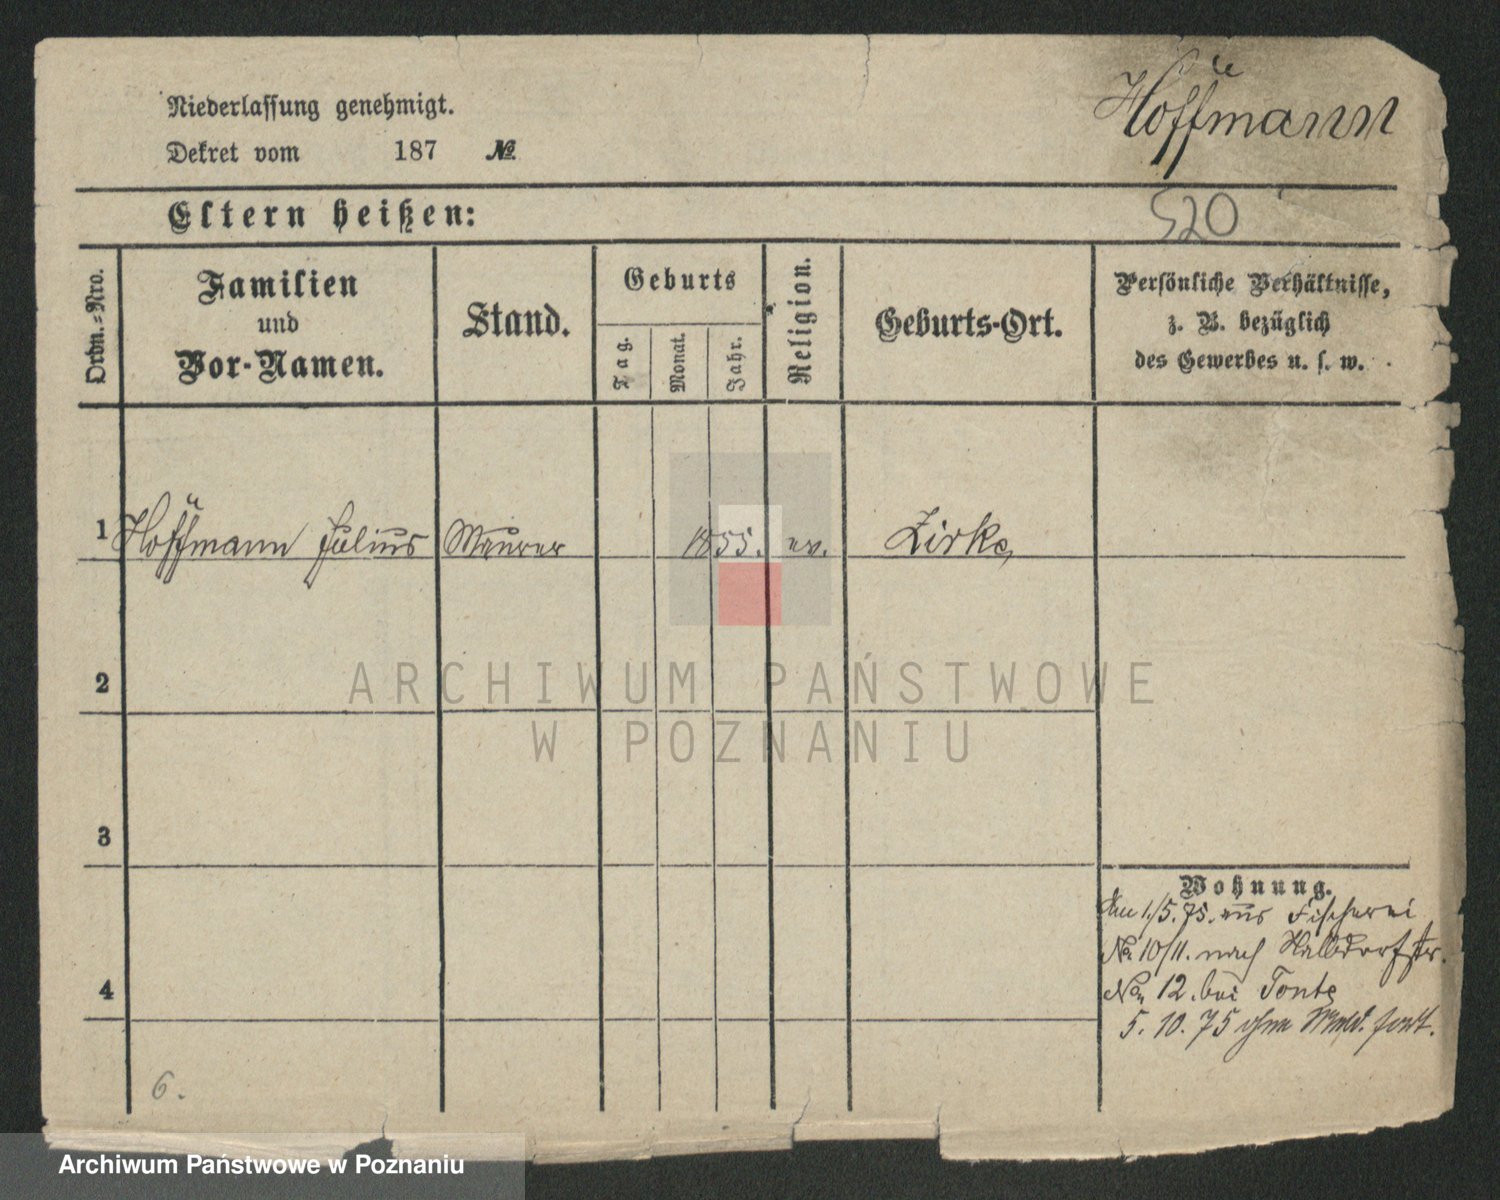 Niederlassung genehmigt.
Dekret vom 187 №
Hoffmann
Eltern heißen:
520
Ordn.-Nro.
Familien
und
Vor-Namen.
Stand.
Geburts
Tag.
Monat.
Jahr.
Religion.
Geburts-Ort.
Persönliche Verhältnisse,
z. B. bezüglich
des Gewerbes u. s. w.
1 Hoffmann Julius Maurer 1855. ev. Zirke
2
ARCHIWUM PAŃSTWOWE
W POZNANIU
3
Wohnung.
1./5.75. aus Fischerei
No 10/11. nach Halbdorfstr.
No 12. bei
4
5. 10. 75 ohne Meld. fort.
6.
Archiwum Państwowe w Poznaniu